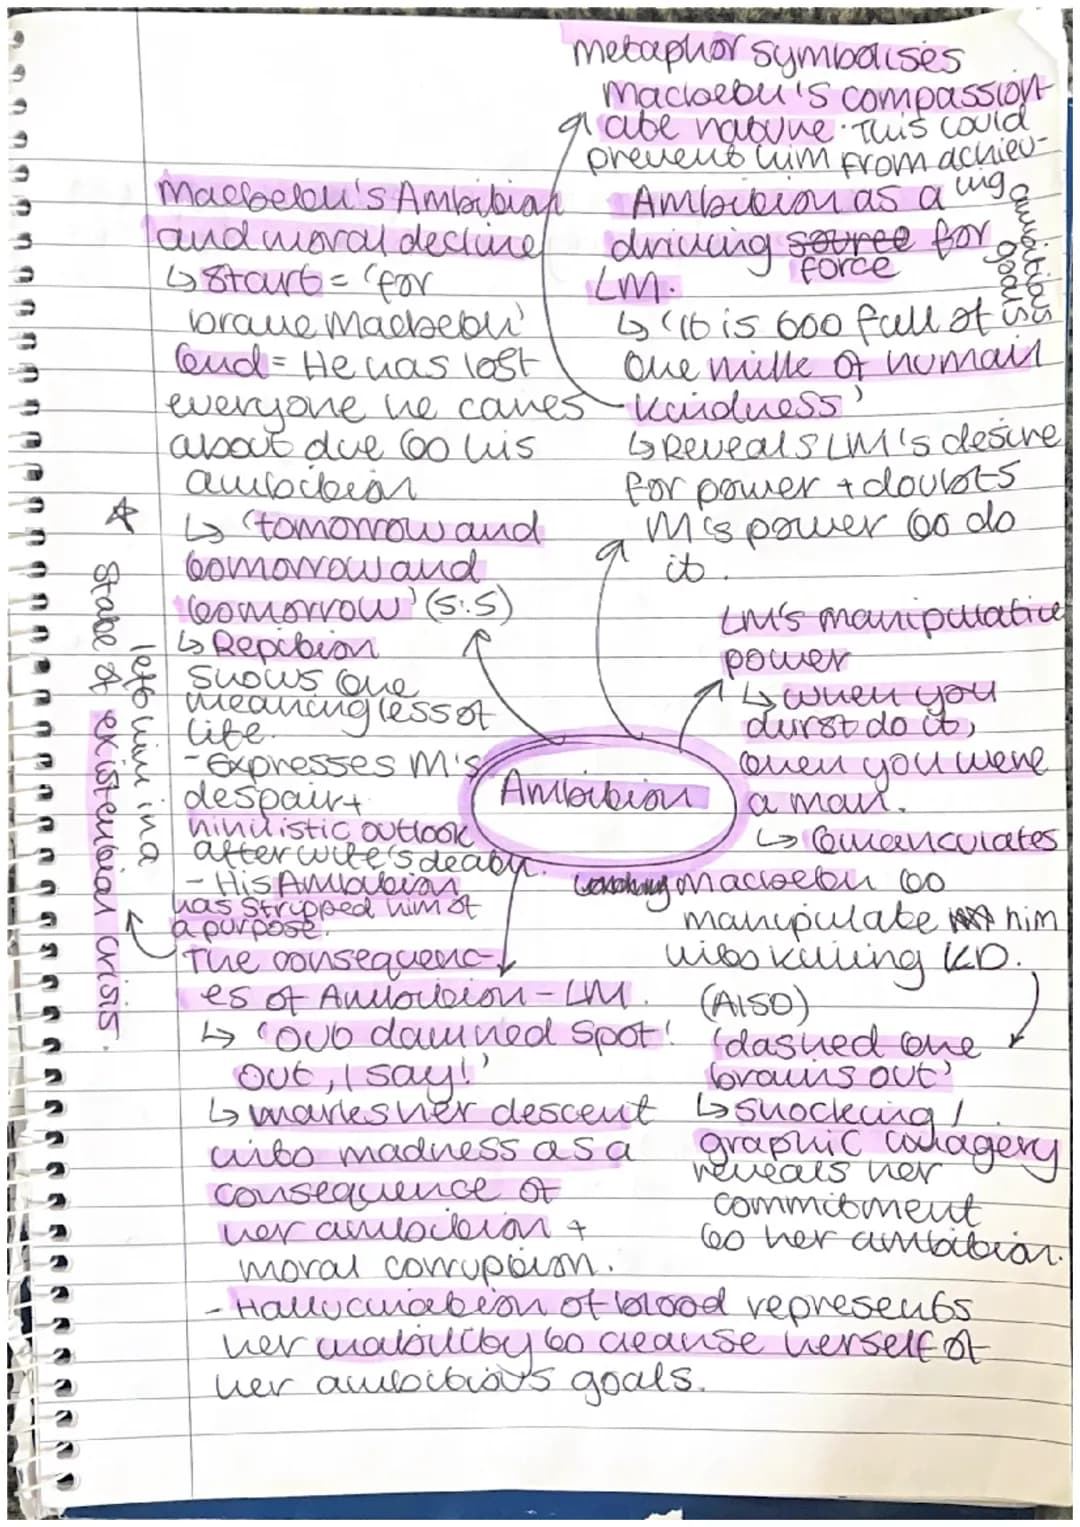 metaphor symbolises
Macbeth's compassion
ate nature. This could
prevent him from achiev-
ing
ambitious
goals
Ambition as a
driving source for
force
LM.
↳ 'it is too full of
the milk of human
kindness'
↳ Reveals LM's desire
for power + doubts
M's power to do
it.
Macbeth's Ambition
and moral decline
↳ Start = 'for
brave Macbeth'
End = He has lost
everyone he cares
about due to his
ambition
↳ 'tomorrow and
tomorrow and
tomorrow' (5:5)
↳ Repition
shows the
meaningless of
life.
- Expresses M's
despair +
nihilistic outlook
after wife's death.
- His Ambition
has stripped him of
a purpose.
☆ left him in a
state of existential crisis.
Ambition
LM's manipulative
power
↳ when you
durst do it,
then you were
a man.
↳ Emanculates
Macbeth to
manipulate him
into killing KD.
(Also)
'dashed the
brains out'
↳ Shocking /
graphic imagery
reveals her
commitment
to her ambition.
The consequenc-
es of Ambition - LM.
↳ 'Out damned spot!
Out, I say!'
↳ marks her descent
into madness as a
consequence of
her ambition +
moral corruption.
- Hallucination of blood represents
her inability to cleanse herself of
her ambitious goals.